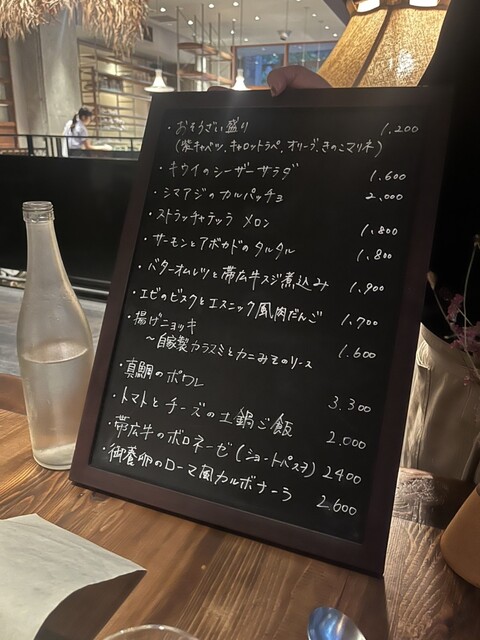 ・おそうざい盛り 1.200
(紫キャベツ、キャロットラペ、オリーブ、きのこマリネ)
・キウイのシーザーサラダ 1.600
・シマアジのカルパッチョ 2.000
・ストラッチャテッラ メロン 1.800
・サーモンとアボカドのタルタル 1.800
・バターオムレツと帯広牛スジ煮込み 1.900
・エビのビスクとエスニック風肉だんご 1.700
・揚げニョッキ 1.600
〜自家製カラスミとカニみそのソース
・真鯛のポワレ 3.300
・トマトとチーズの土鍋ご飯 2.000
・帯広牛のボロネーゼ(ショートパスタ) 2400
・御養卵のローマ風カルボナーラ 2.600